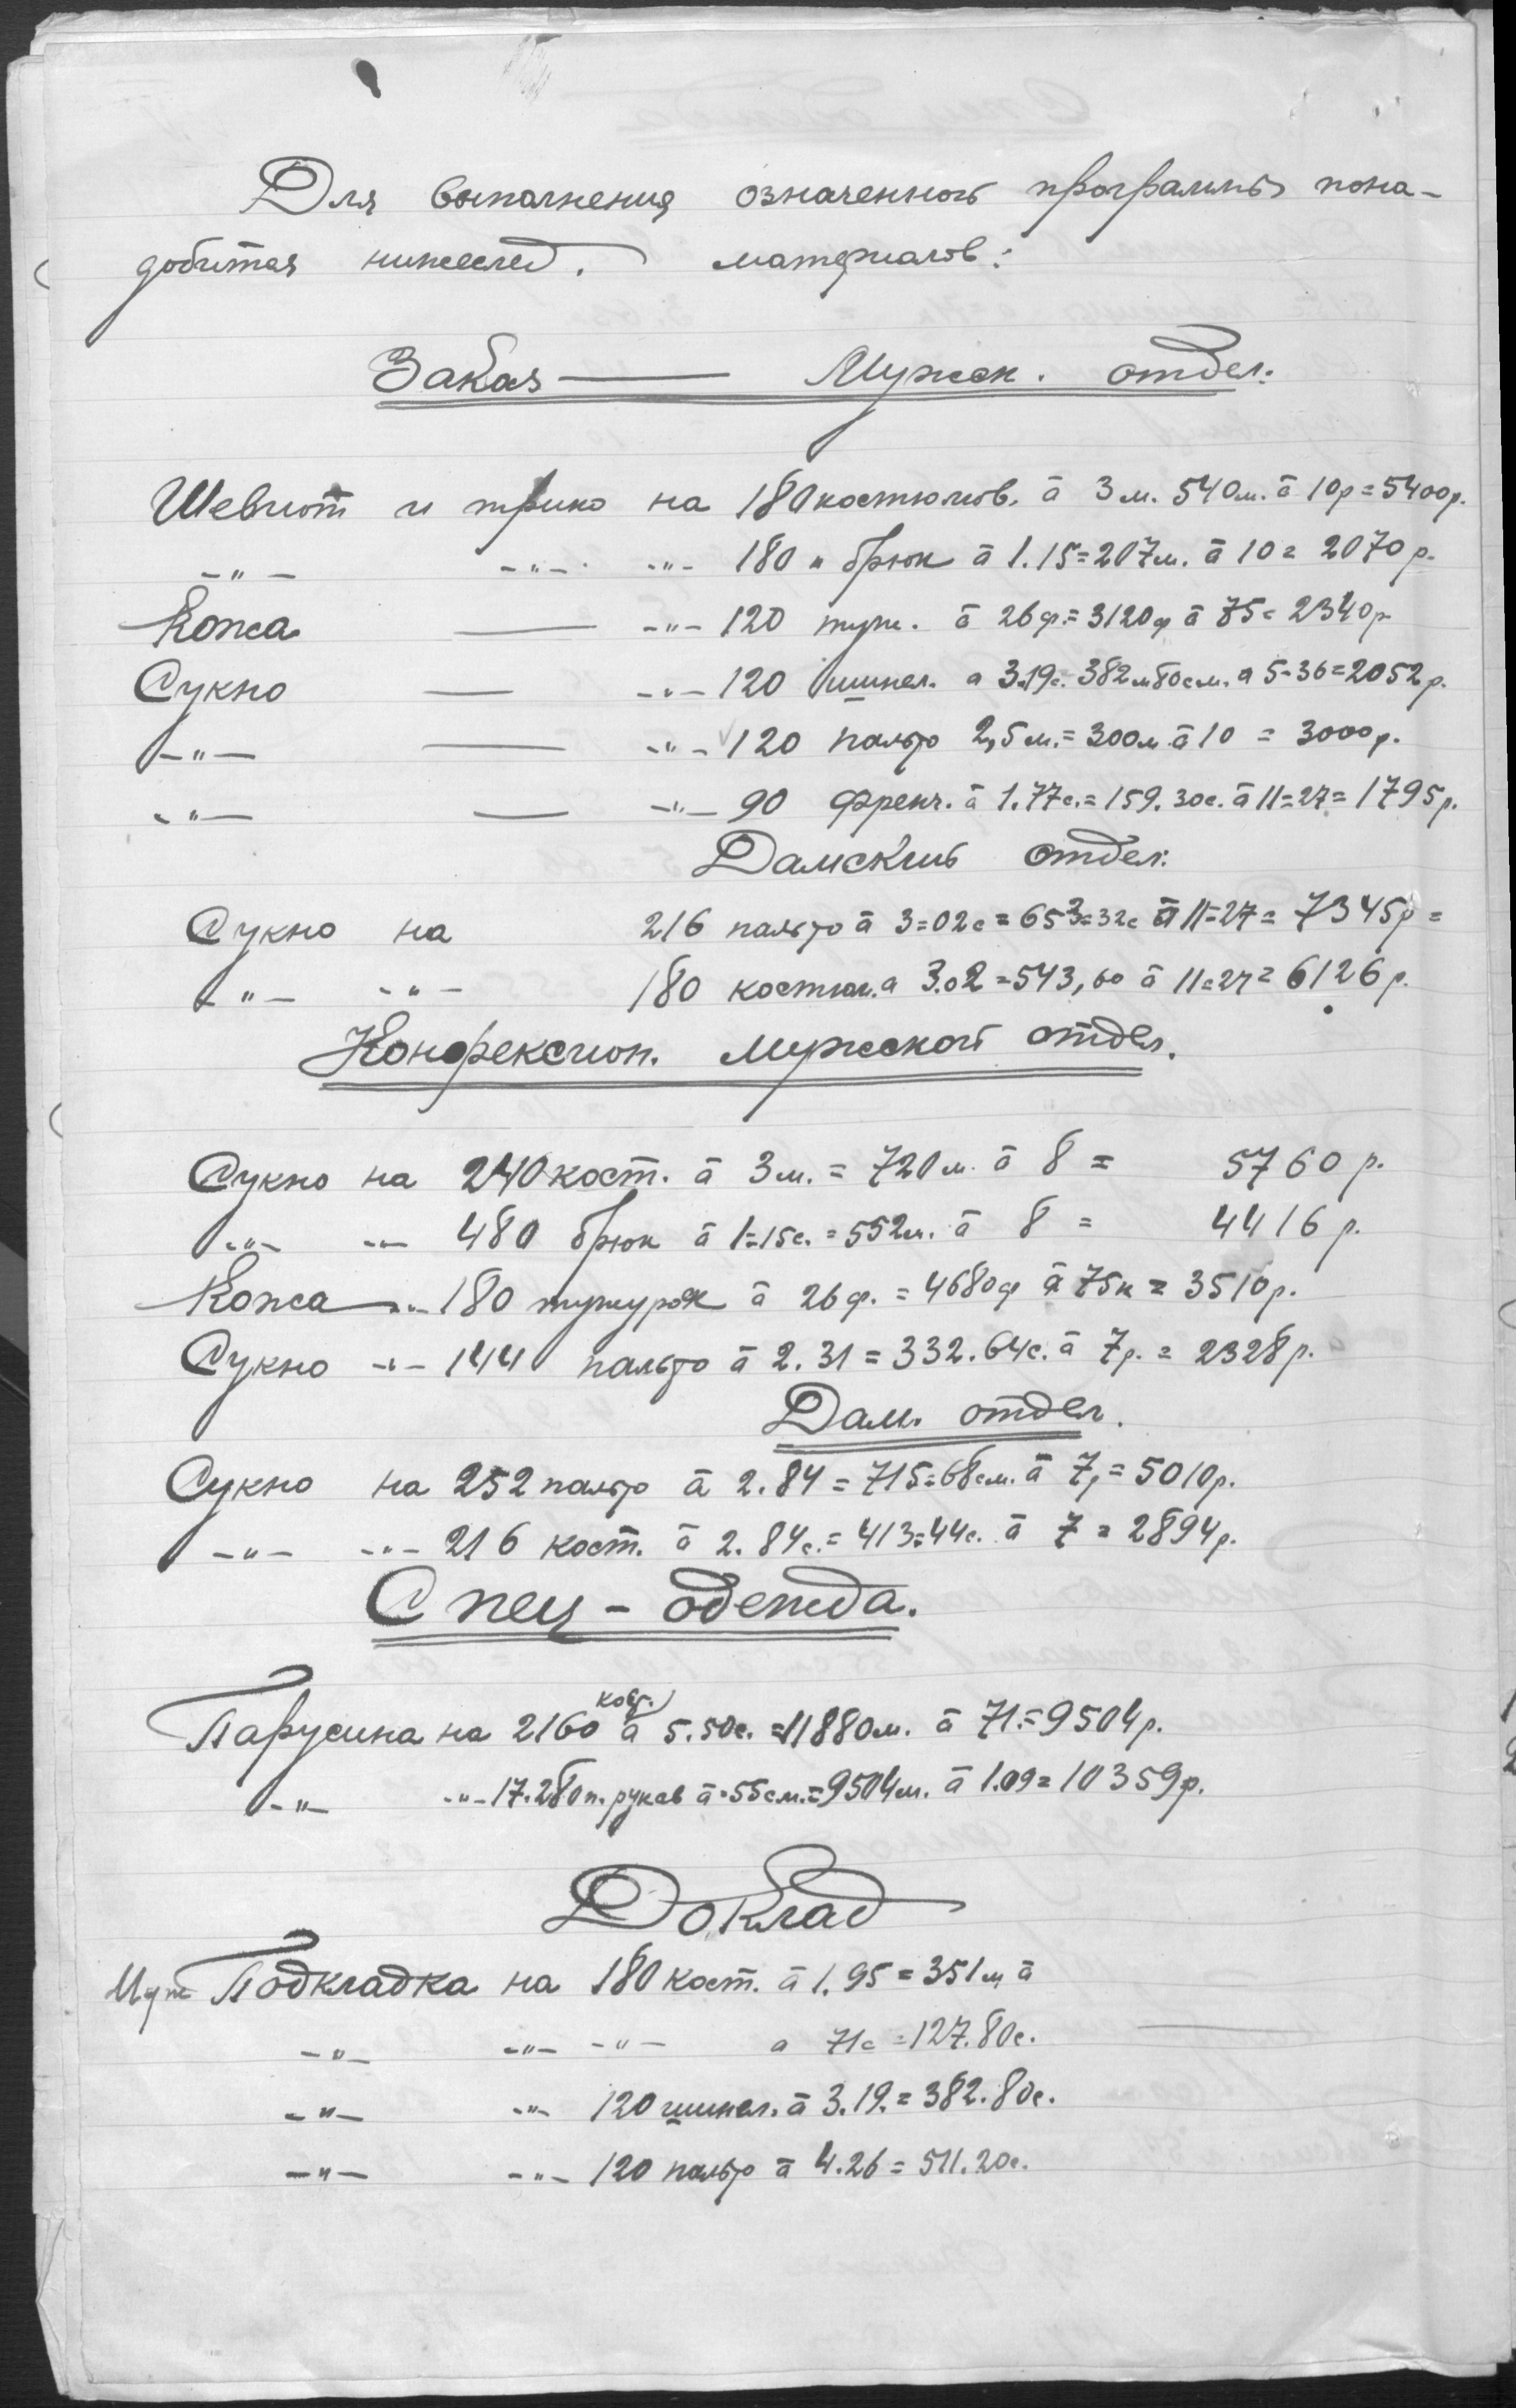 Для выполнения означенной программы пона-
добится нижеслед. материалов:
Заказ — Мужск. отдел.
Шевиот и трико на 180 костюмов. à 3 м. 540 м. à 10 р = 5400 р.
-"- -"- -"- 180 " брюк à 1.15 = 207 м. à 10 = 2070 р.
Кожа — -"- 120 туж. à 26 ф. = 3120 ф à 75 = 2340 р
Сукно — -"- 120 шинел. а 3.19с. 382 м 80 см. а 5-36 = 2052 р.
-"- — -"- 120 пальто 2,5 м. = 300 м à 10 = 3000 р.
-"- — -"- 90 френч. à 1.77с. = 159.30с. à 11=27 = 1795 р.
Дамский отдел.
Сукно на 216 пальто à 3=02с = 653=32с à 11=27 = 7345 р =
-"- -"- 180 костюм. а 3.02 = 543,60 à 11=27 = 6126 р.
Конфексион. мужской отдел.
Сукно на 240 кост. à 3 м. = 720 м. à 8 = 5760 р.
-"- -"- 480 брюк à 1=15с. = 552 м. à 8 = 4416 р.
Кожа -"- 180 тужурок à 26 ф. = 4680 ф à 75 к = 3510 р.
Сукно -"- 144 пальто à 2.31 = 332.64с. à 7 р. = 2328 р.
Дам. отдел.
Сукно на 252 пальто à 2.84 = 715=68 см. à 7, = 5010 р.
-"- -"- 216 кост. à 2.84с. = 413=44с. à 7 = 2894 р.
Спец-одежда.
Парусина на 2160 à 5.50с. = 11880 м. à 71. = 9504 р.
-"- -"- 17.280 п. рукав à =55 см. = 9504 м. à 1.09 = 10359 р.
Доклад
Муж Подкладка на 180 кост. à 1.95 = 351 м à
-"- -"- -"- а 71с = 127.80с.
-"- -"- 120 шинел. à 3.19. = 382.80с.
-"- -"- 120 пальто à 4.26 = 511.20с.